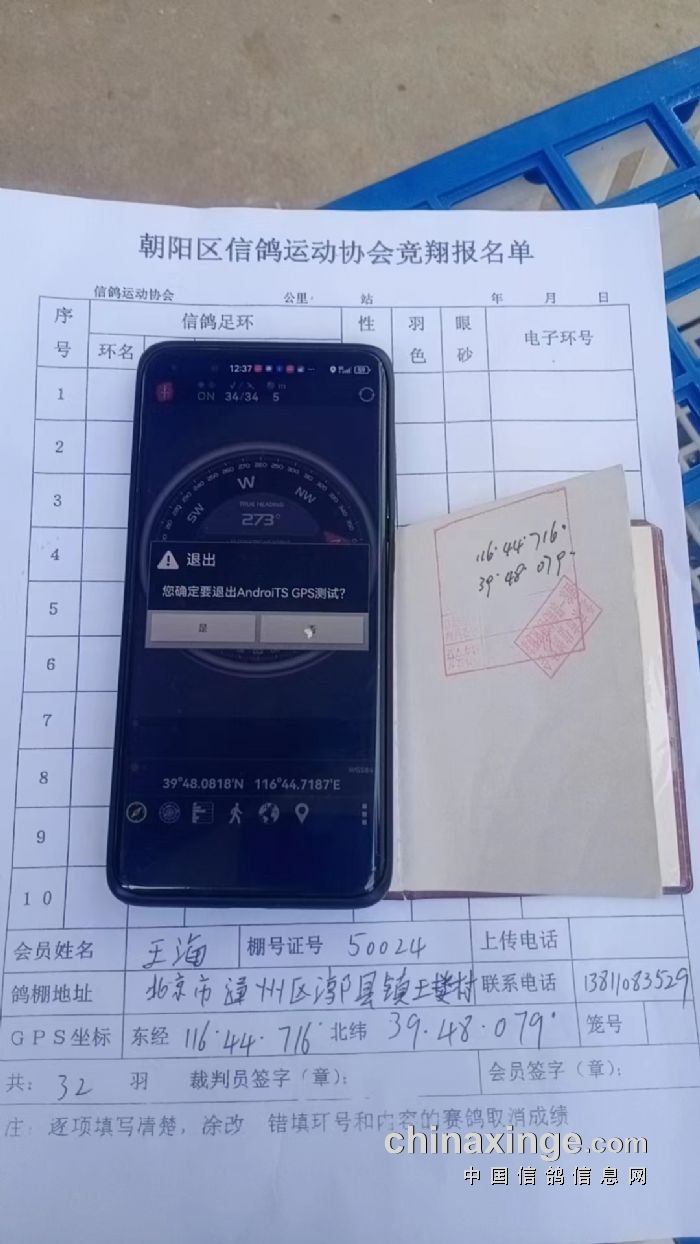 朝阳区信鸽运动协会竞翔报名单
信鸽运动协会 公里 站 年 月 日
序号 信鸽足环 性 羽色 眼砂 电子环号
环名
1
2
3
4
5
6
7
8
9
10
12:37
ON 34/34 5
SW W NW
TRUE HEADING
273°
退出
您确定要退出AndroiTS GPS测试?
是
WGS84
39°48.0818'N 116°44.7187'E
116·44·716·
39·48·079·
会员姓名 王海 棚号证号 50024 上传电话
鸽棚地址 北京市 州区漷县镇王楼村 联系电话 13811083529
GPS坐标 东经 116·44·716· 北纬 39·48·079· 笼号
共: 32 羽 裁判员签字(章): 会员签字(章):
注: 逐项填写清楚, 涂改 错填环号和内容的赛鸽取消成绩
chinaxinge.com
中国信鸽信息网